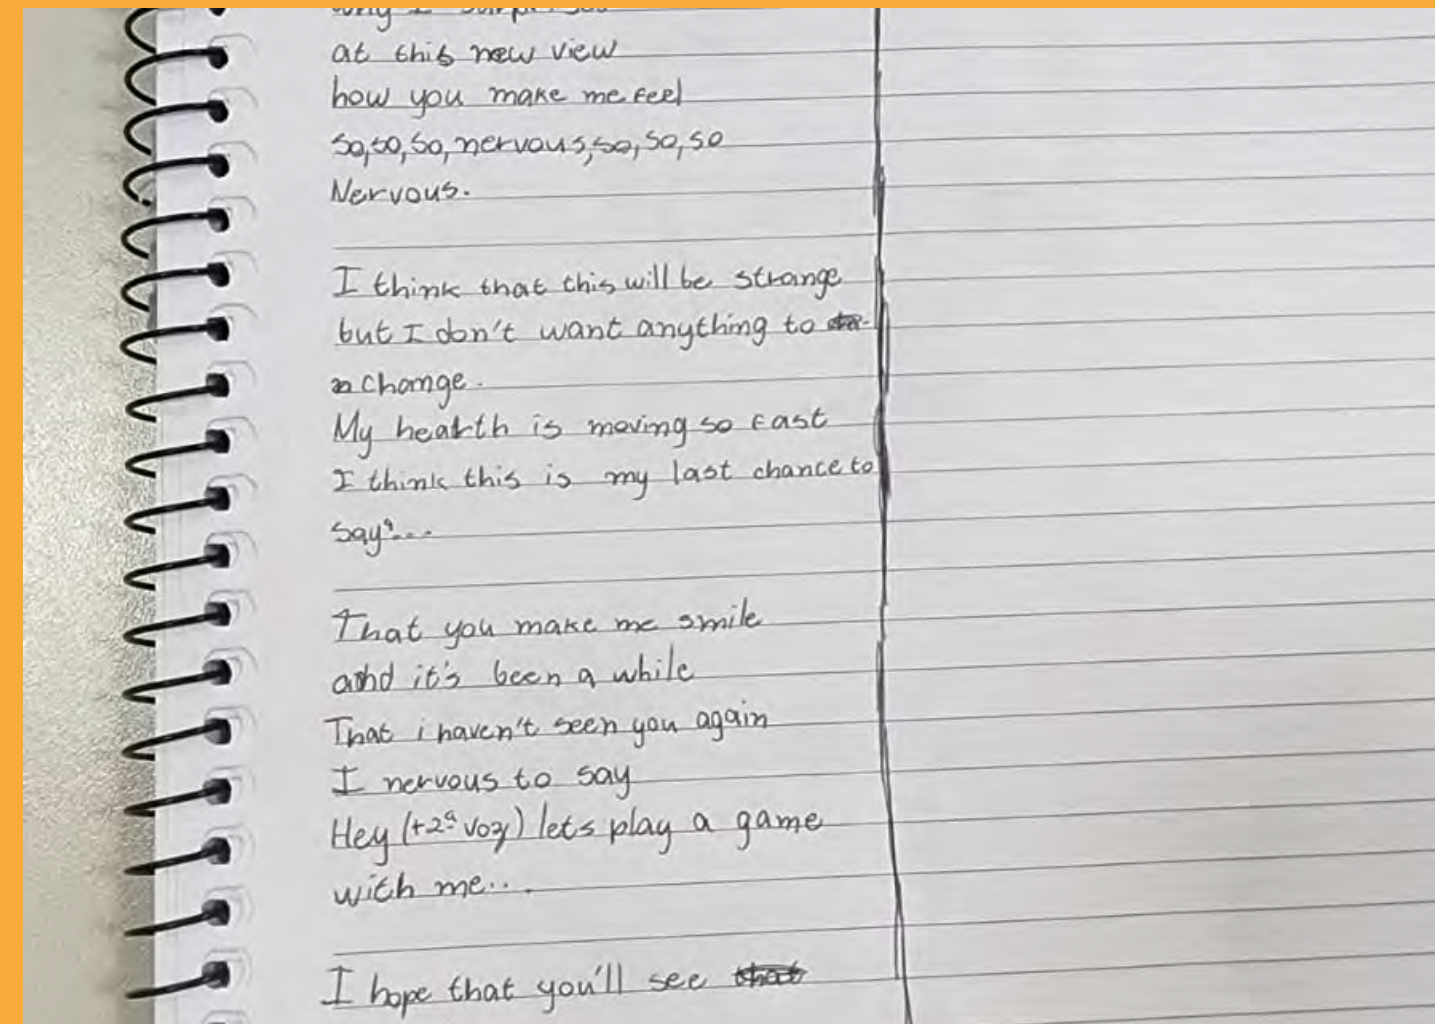 why I surprised
at this new view
how you make me feel
so,so,so,nervous,so,so,so
Nervous.
I think that this will be strange
but I don't want anything to
change.
My health is moving so fast
I think this is my last chance to
say"...
That you make me smile
and it's been a while
That i haven't seen you again
I nervous to say
Hey (+2ª voz) lets play a game
with me...
I hope that you'll see